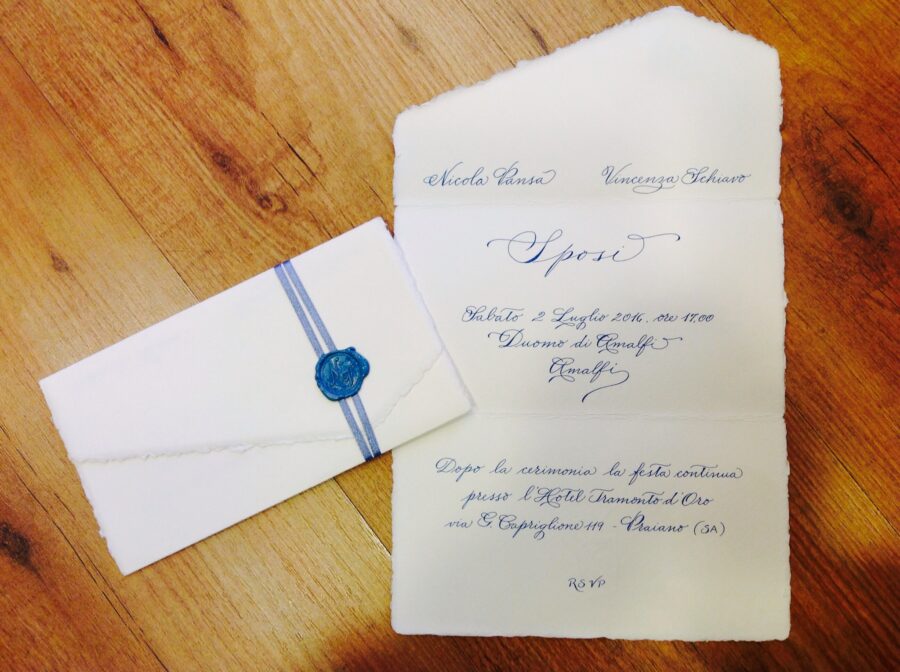 Nicola Pansa Vincenza Schiavo
Sposi
Sabato 2 Luglio 2016, ore 17,00
Duomo di Amalfi
Amalfi
Dopo la cerimonia la festa continua
presso l'Hotel Tramonto d'Oro
via G. Capriglione 119 - Praiano (SA)
RSVP